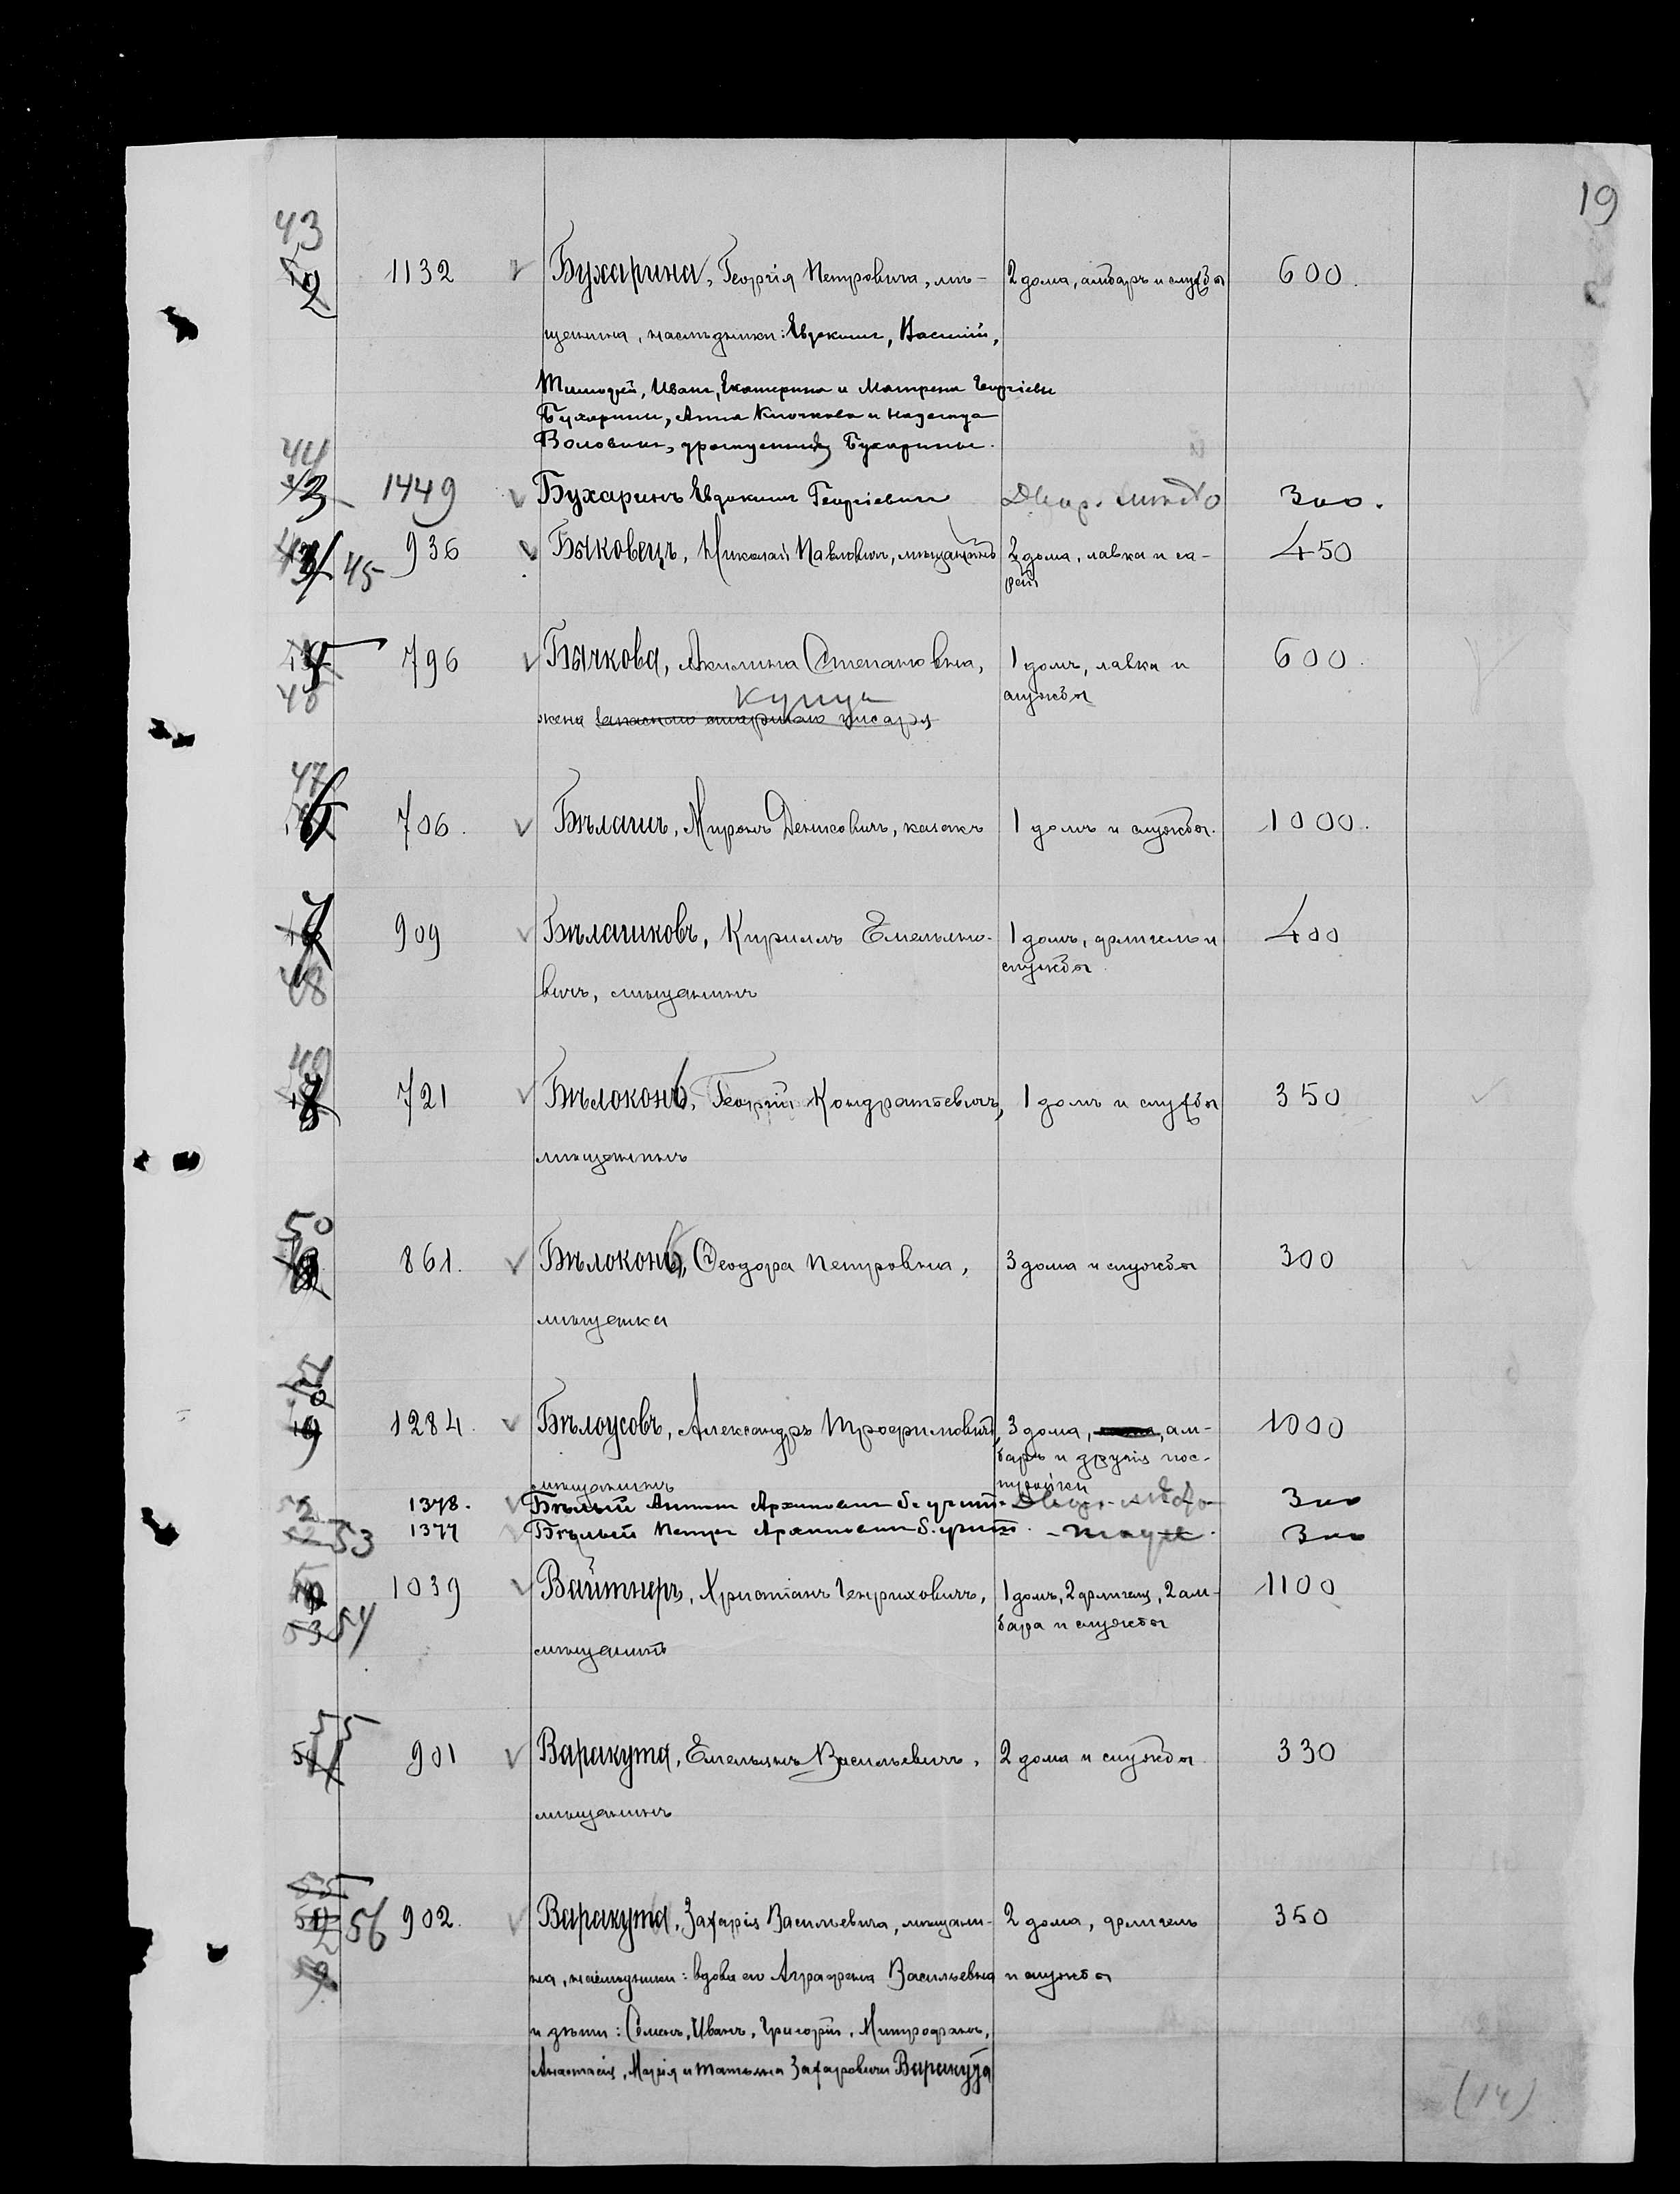 19
43
1132 Бухарина, Георгія Петровича, мѣ- 2 дома, амбаръ и службы 600.
щанина, наслѣдники: Евдокимъ, Василій,
Тимофей, Иванъ, Екатерина и Матрена Георгіевы
Бухарины, Анна Клочкова и Надежда
Воловикъ, урожденныя Бухарины.
44
1449 Бухаринъ Евдокимъ Георгіевичъ Двор. мѣсто 300.
45 936 Быковецъ, Николай Павловичъ, мѣщанинъ 2 дома, лавка и са- 450
рай
796 Бычкова, Акилина Степановна, 1 домъ, лавка и 600.
службы
купца
жена запаснаго старшаго писаря
47
706. Бѣлашъ, Миронъ Денисовичъ, казакъ 1 домъ и службы. 1000.
909 Бѣлашковъ, Кириллъ Емельяно- 1 домъ, флигель и 400
службы
48
вичъ, мѣщанинъ
49
721 Бѣлоконь, Георгій Кондратьевичъ, 1 домъ и службы 350
мѣщанинъ
50
861. Бѣлоконь, Ѳеодора Петровна, 3 дома и службы 300
мѣщанка
51
1284. Бѣлоусовъ, Александръ Трофимовичъ, 3 дома, ам- 1000
баръ и другія пос-
мѣщанинъ тройки
1378. Бѣлый Антонъ Архиповичъ Двор. мѣсто 300
53 1377 Бѣлый Петръ Архиповичъ - тоже - 300
1039 Вайтнеръ, Христіанъ Генриховичъ, 1 домъ, 2 флигеля, 2 ам- 1100
бара и службы
53 54
мѣщанинъ
55
901 Варакута, Емельянъ Васильевичъ, 2 дома и службы 330
мѣщанинъ
56 902. Варакута, Захарія Васильевича, мѣщани- 2 дома, флигель 350
на, наслѣдники: вдова его Аграфена Васильевна и службы
и дѣти: Семенъ, Иванъ, Григорій, Митрофанъ,
Анастасія, Марія и Татьяна Захаровичи Варакута
(14)